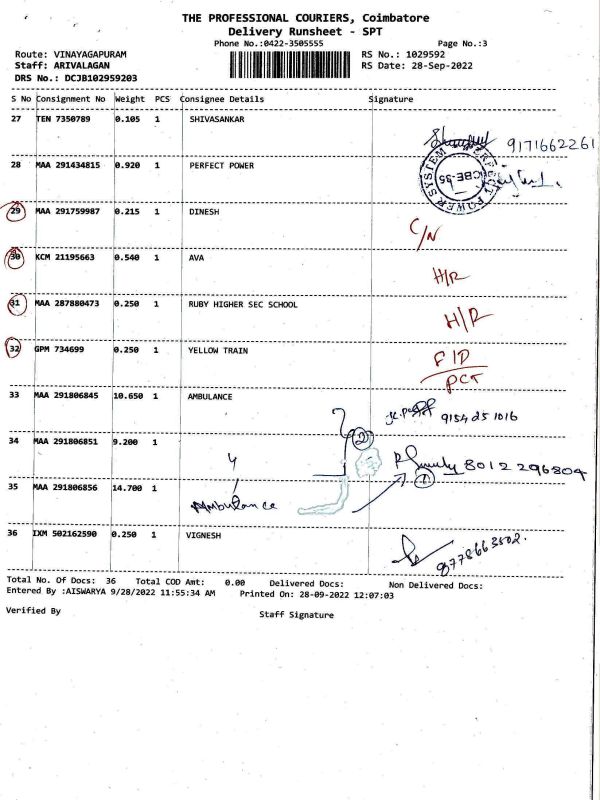 THE PROFESSIONAL COURIERS, Coimbatore
Delivery Runsheet - SPT
Phone No.:0422-3505555 Page No.:3
Route: VINAYAGAPURAM RS No.: 1029592
Staff: ARIVALAGAN RS Date: 28-Sep-2022
DRS No.: DCJB102959203
S No Consignment No Weight PCS Consignee Details Signature
27 TEN 7350789 0.105 1 SHIVASANKAR
9171662261
28 MAA 291434815 0.920 1 PERFECT POWER
POWER SYSTEM CBE-35
29 MAA 291759987 0.215 1 DINESH
C/N
30 KCM 21195663 0.540 1 AVA
H/R
31 MAA 287880473 0.250 1 RUBY HIGHER SEC SCHOOL
H/R
32 GPM 734699 0.250 1 YELLOW TRAIN
FID
PCT
33 MAA 291806845 10.650 1 AMBULANCE
9154251016
34 MAA 291806851 9.200 1
2
4
8012296804
1
35 MAA 291806856 14.700 1
Ambulance
36 IXM 502162590 0.250 1 VIGNESH
9778663502.
Total No. Of Docs: 36 Total COD Amt: 0.00 Delivered Docs: Non Delivered Docs:
Entered By :AISWARYA 9/28/2022 11:55:34 AM Printed On: 28-09-2022 12:07:03
Verified By Staff Signature